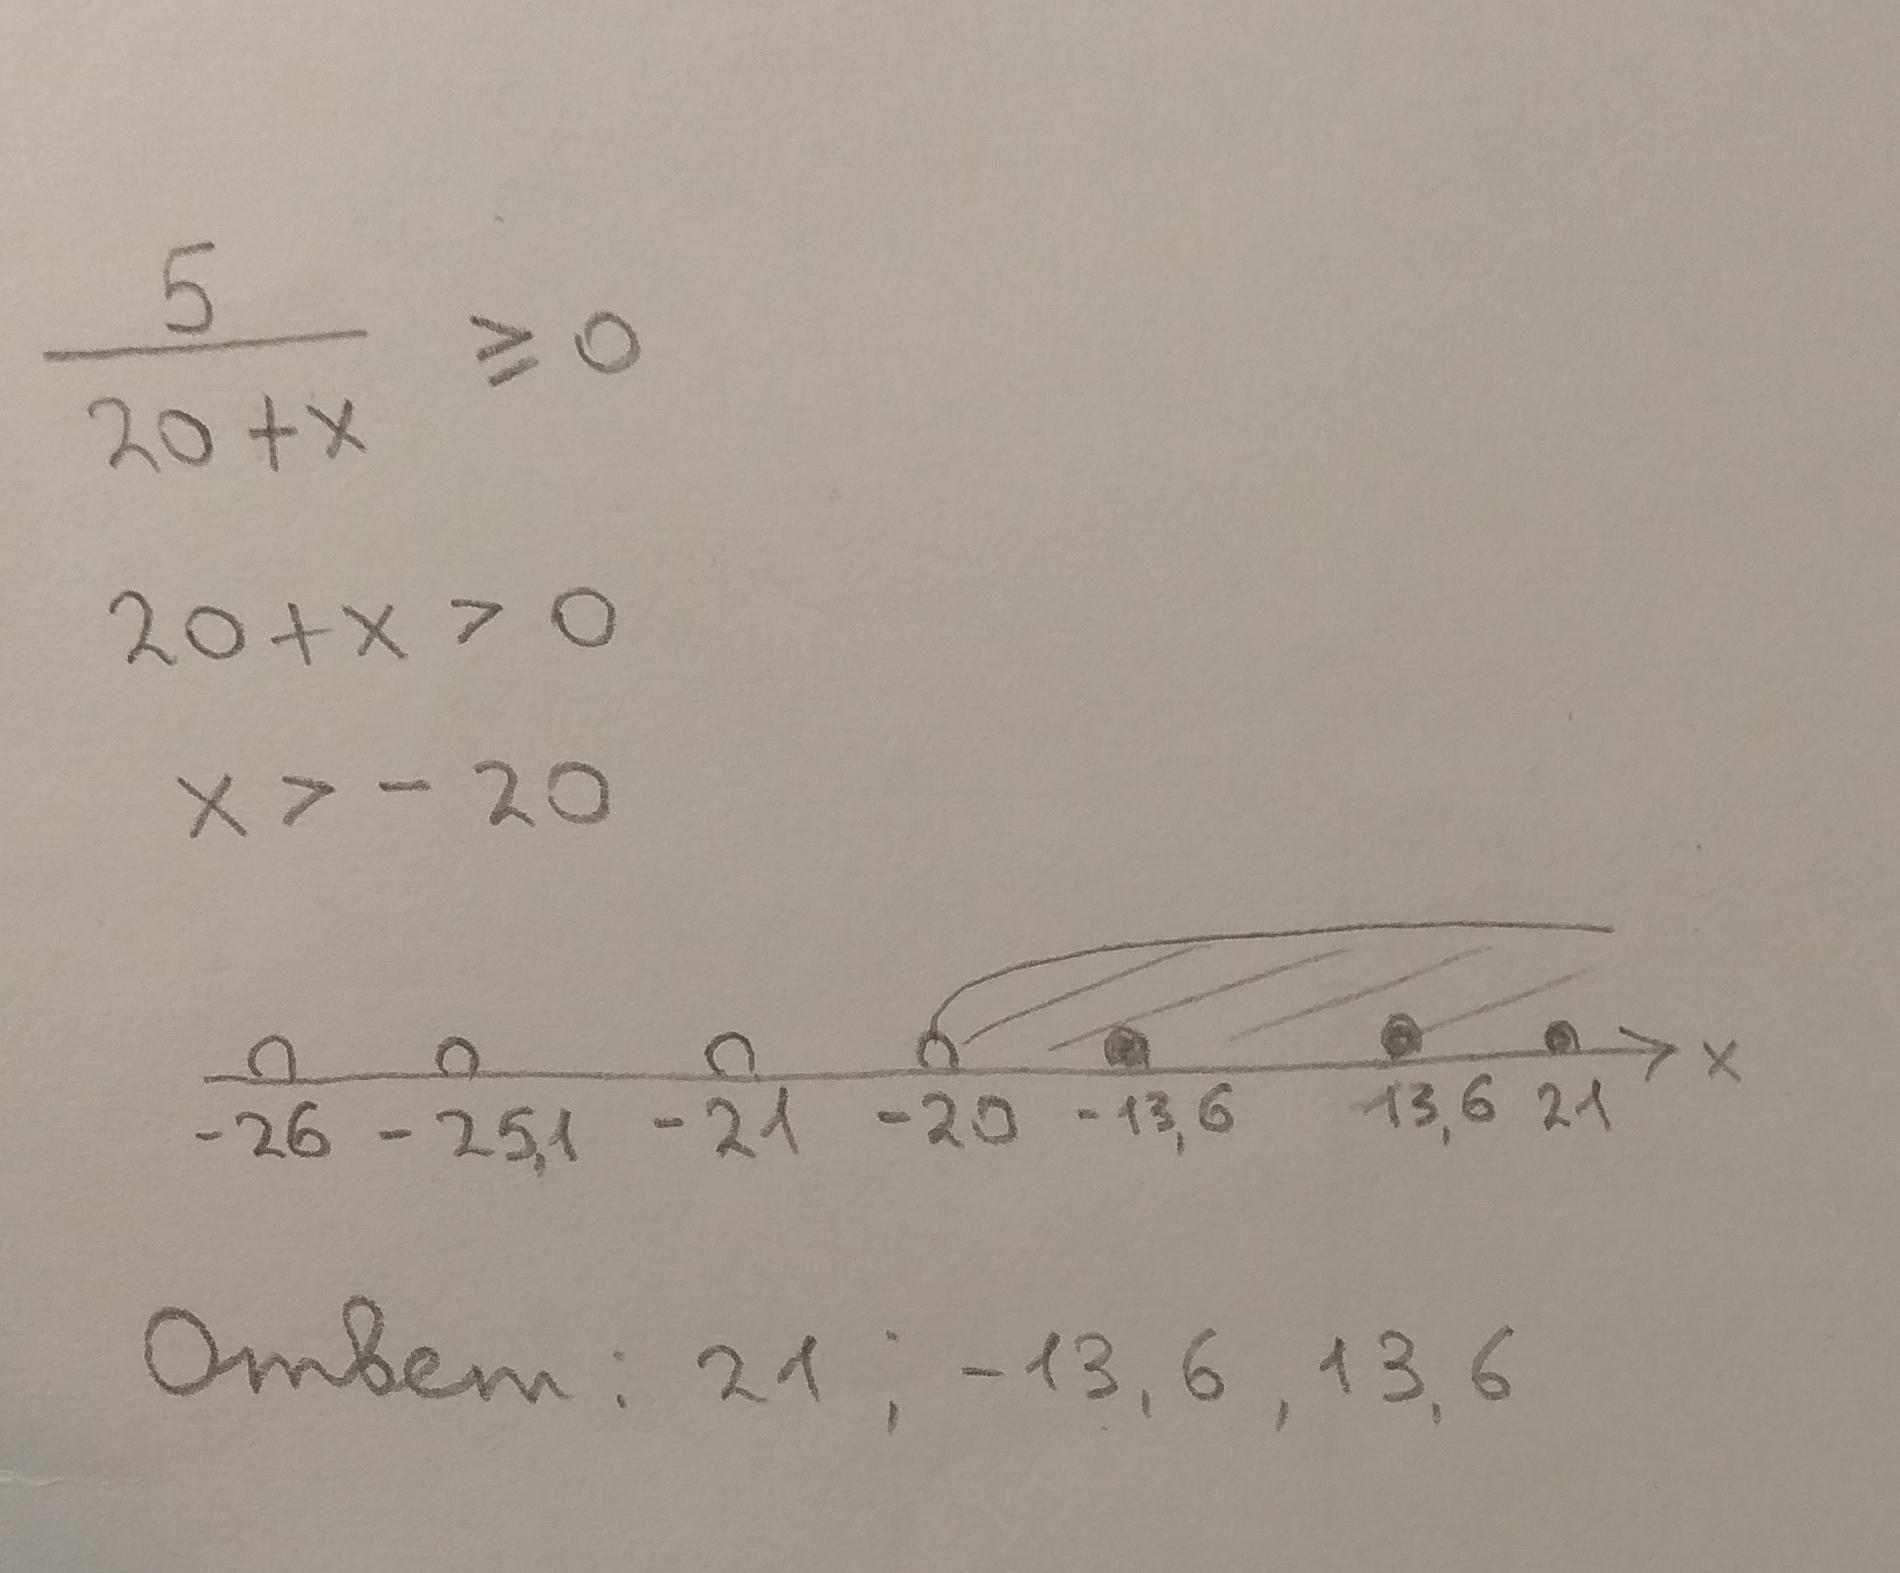 5
20+x ≥ 0
20+x > 0
x > - 20
x
-26 -25,1 -21 -20 -13,6 13,6 21
Ответ: 21; -13,6, 13,6